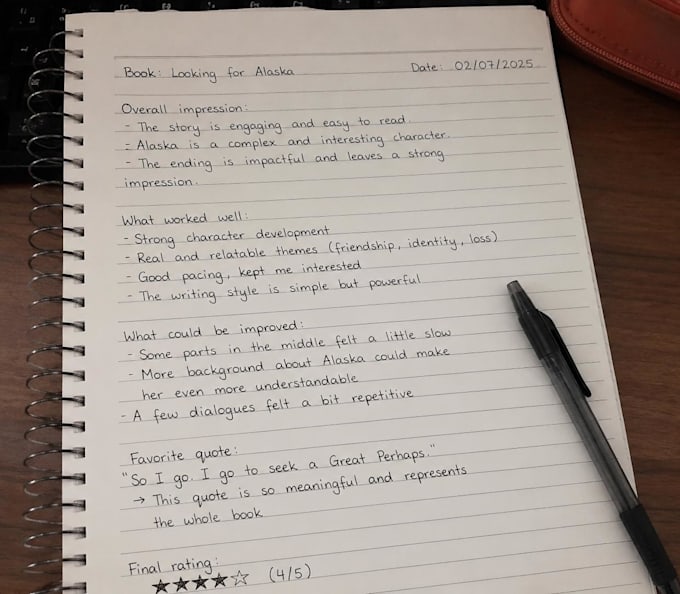 Book: Looking for Alaska Date: 02/07/2025
Overall impression:
- The story is engaging and easy to read.
- Alaska is a complex and interesting character.
- The ending is impactful and leaves a strong
impression.
What worked well:
- Strong character development
- Real and relatable themes (friendship, identity, loss)
- Good pacing, kept me interested
- The writing style is simple but powerful
What could be improved:
- Some parts in the middle felt a little slow
- More background about Alaska could make
her even more understandable
- A few dialogues felt a bit repetitive
Favorite quote:
"So I go. I go to seek a Great Perhaps."
→ This quote is so meaningful and represents
the whole book
Final rating:
★★★★☆ (4/5)